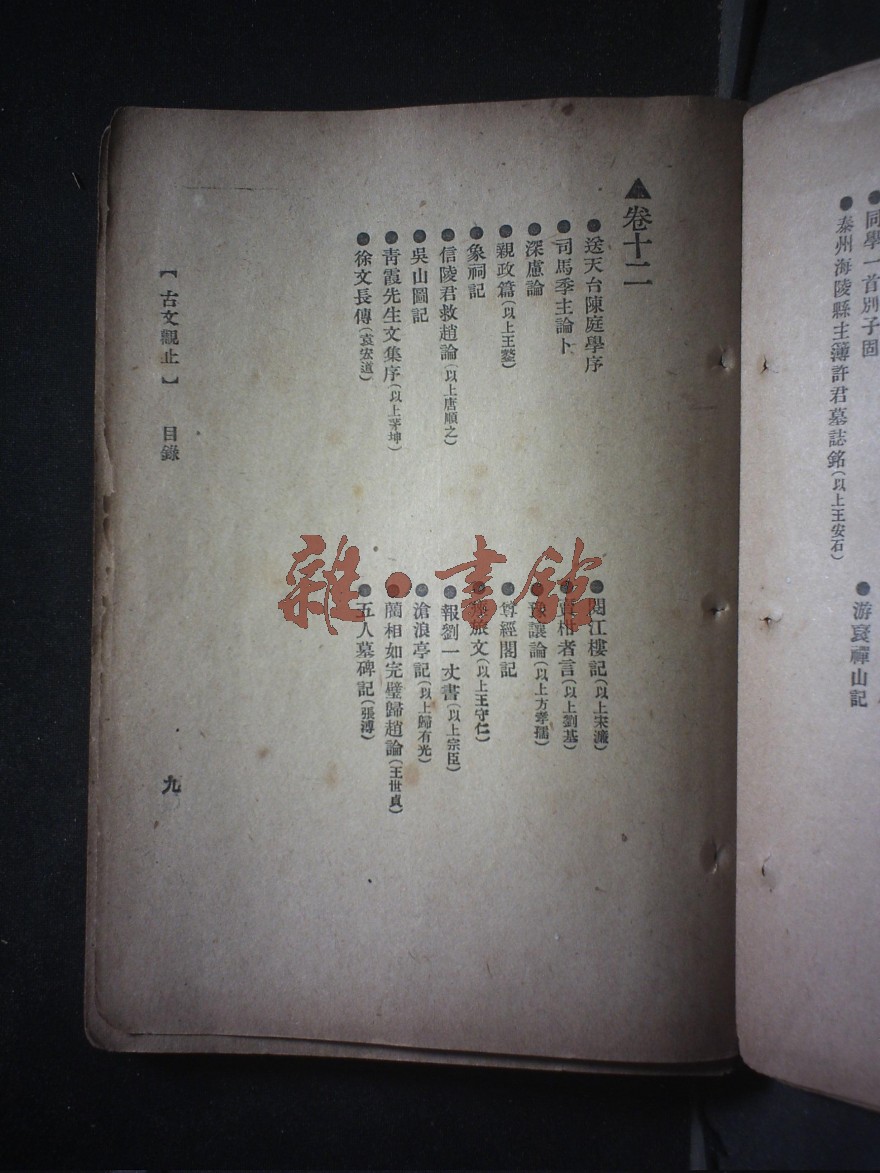 同學一首別子固
●游褒禪山記
●泰州海陵縣主簿許君墓誌銘(以上王安石)
▲卷十二
●送天台陳庭學序
●閱江樓記(以上宋濂)
●司馬季主論卜
●賣柑者言(以上劉基)
●深慮論
●豫讓論(以上方孝孺)
●親政篇(以上王鏊)
●尊經閣記
●象祠記
●瘞旅文(以上王守仁)
●信陵君救趙論(以上唐順之)
●報劉一丈書(以上宗臣)
●吳山圖記
●滄浪亭記(以上歸有光)
●青霞先生文集序(以上茅坤)
●藺相如完璧歸趙論(王世貞)
●徐文長傳(袁宏道)
●五人墓碑記(張溥)
【古文觀止】 目錄 九
雜·書館